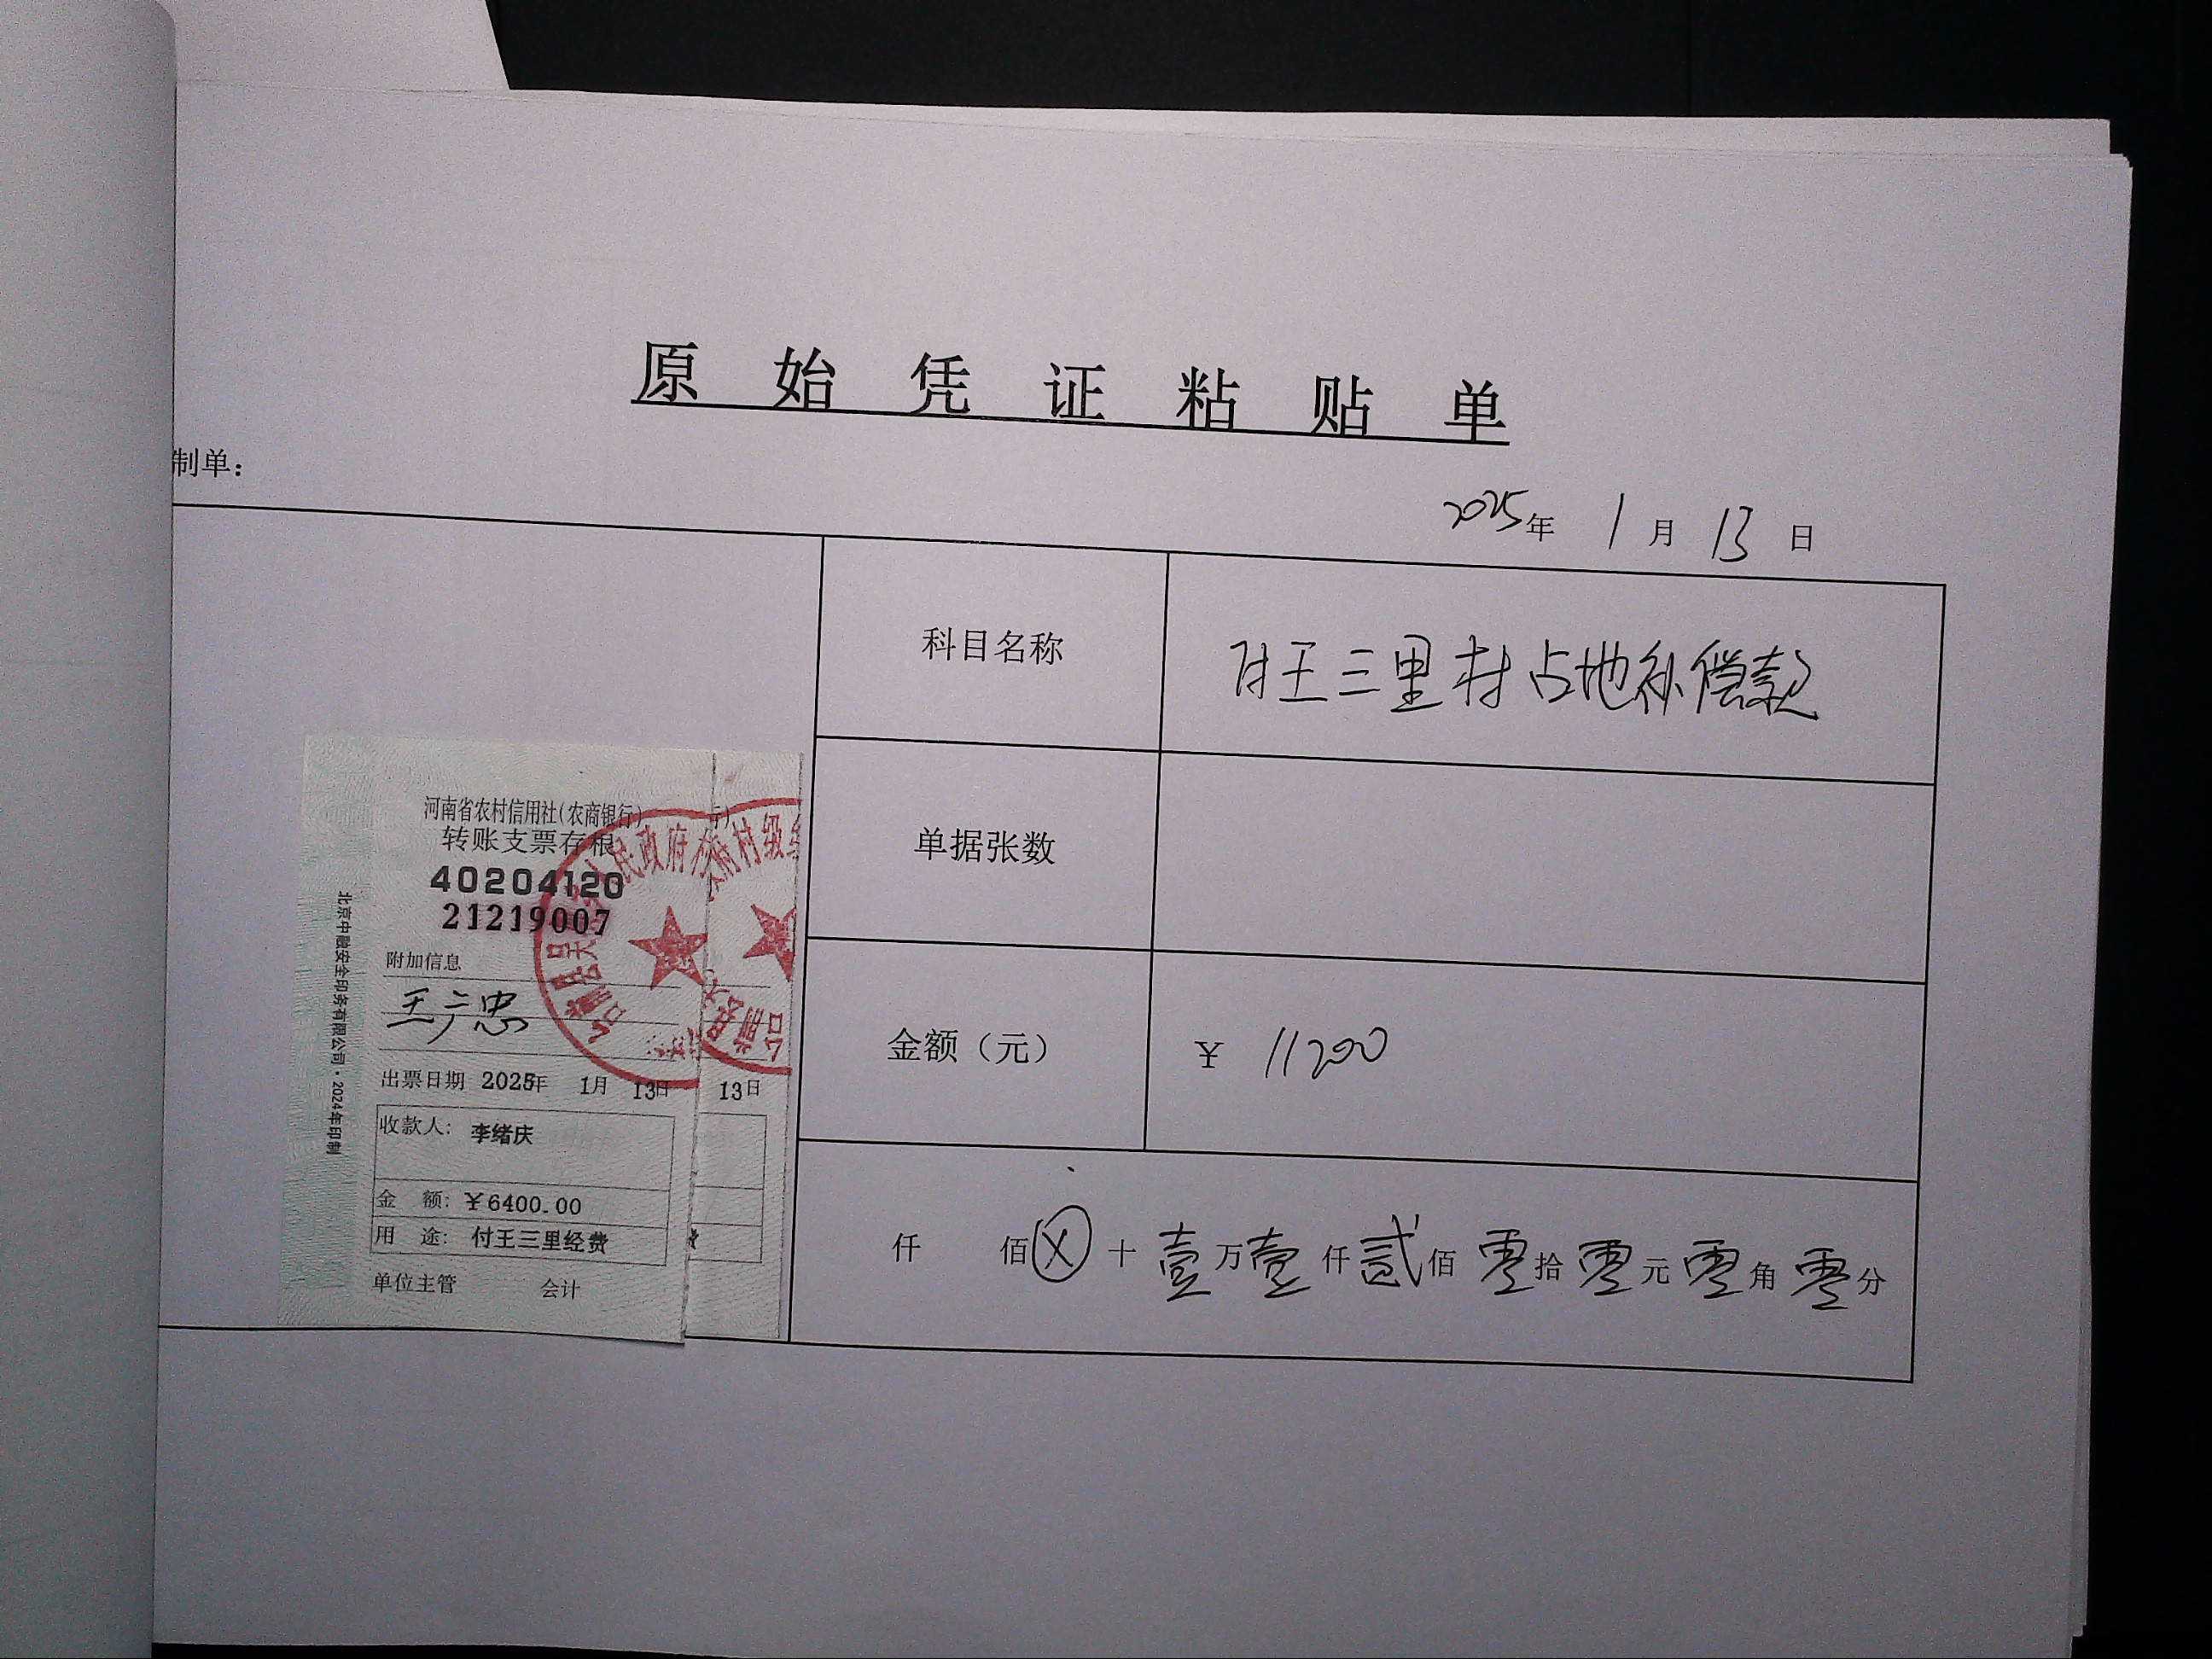 原始凭证粘贴单
制单：
2025年 1月 13日
科目名称 付王三里村占地补偿款
单据张数
金额（元） ¥ 11200
仟 佰ⓧ十壹万壹仟贰佰零拾零元零角零分
河南省农村信用社(农商银行)
转账支票存根
40204120
21219007
附加信息
王广忠
出票日期 2025年 1月 13日
收款人: 李绪庆
金 额: ¥6400.00
用 途: 付王三里经费
单位主管 会计
北京中融安全印务有限公司·2024年印制
人民政府村
13日
府村级